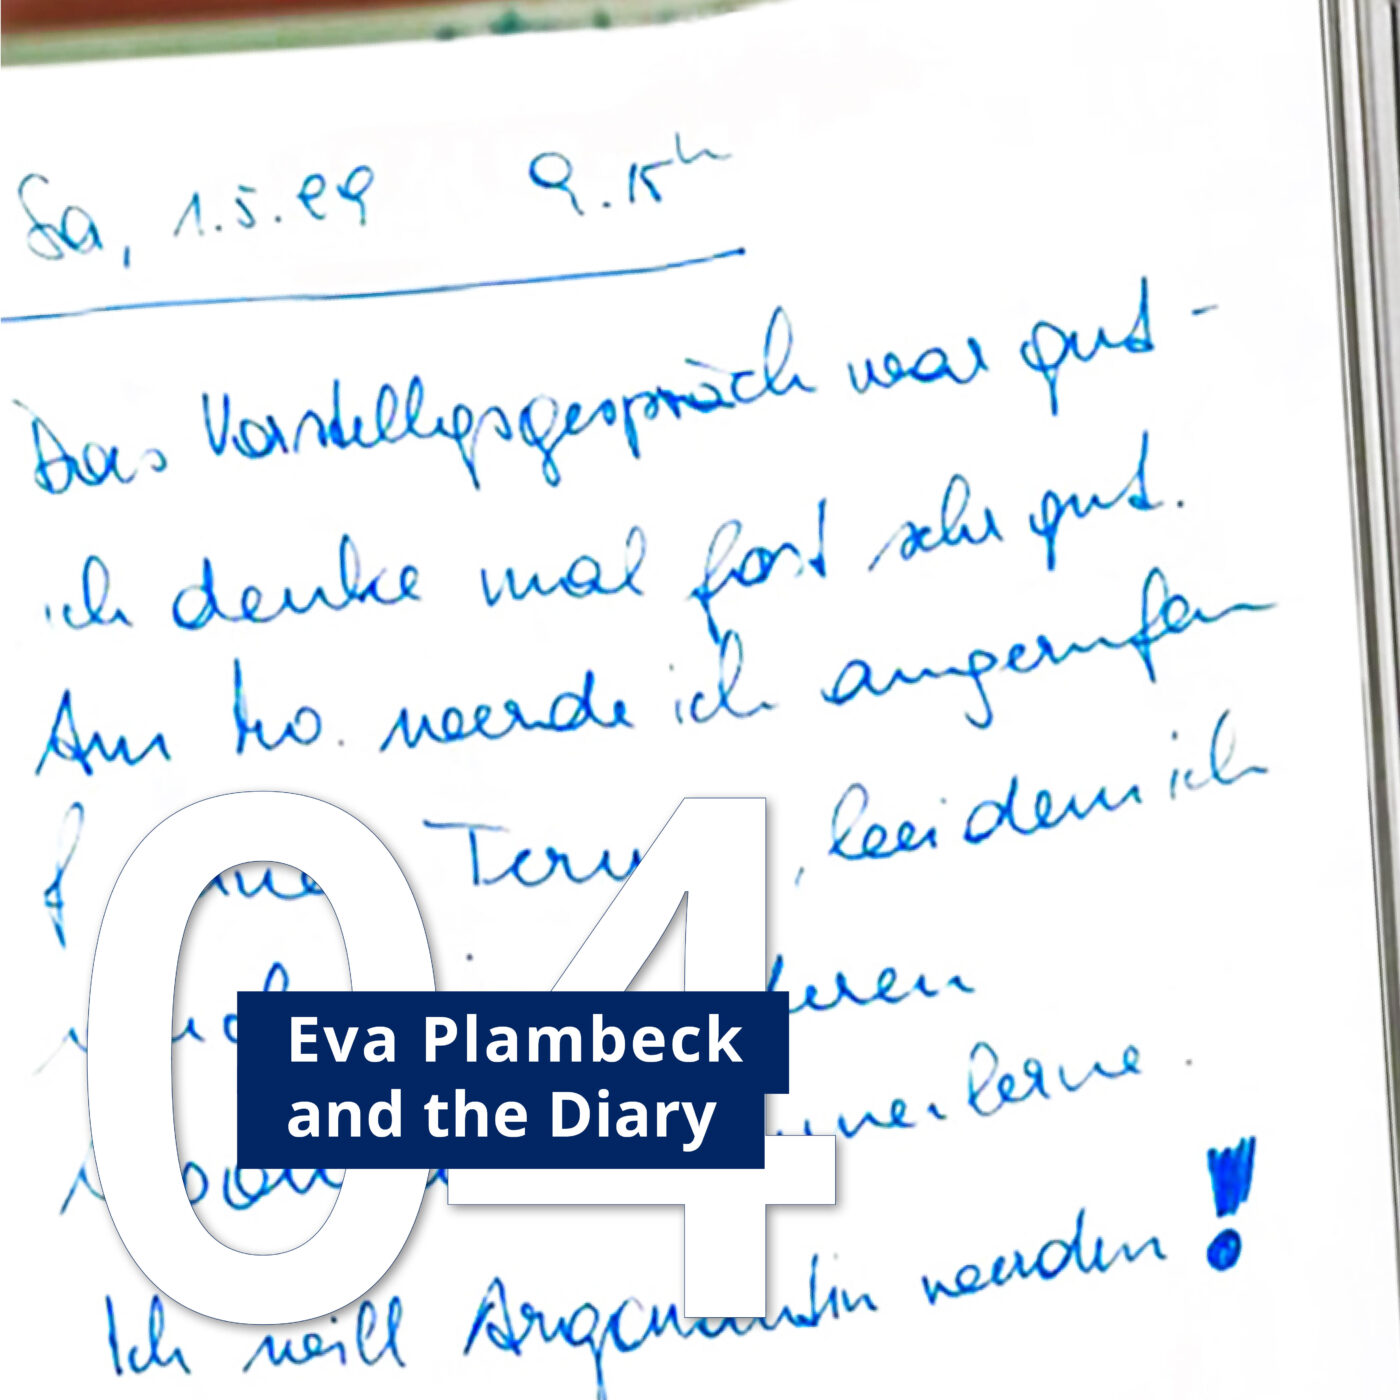 Sa, 1.5.99 9.15h
Das Vorstellgsgespräch war gut -
ich denke mal fast sehr gut.
Am Mo. werde ich angerufen
, bei dem ich
Ich will Argonautin werden!
04
Eva Plambeck
and the Diary